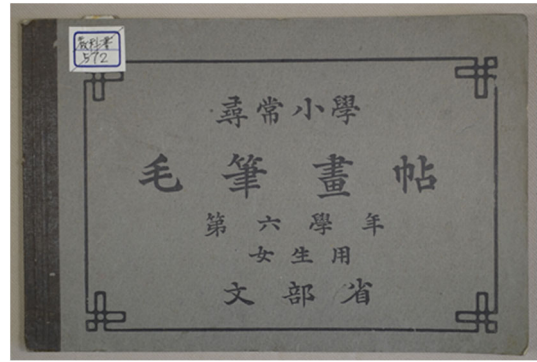 教科書
572
尋常小學
毛筆畫帖
第六學年
女生用
文部省